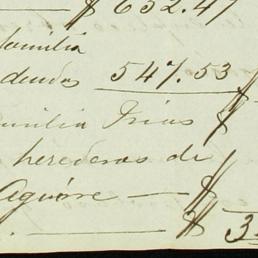 — $ 632.47
familia
deudas 547.53
familia Frias $
herederas de
Aguirre — $
. — $ 3